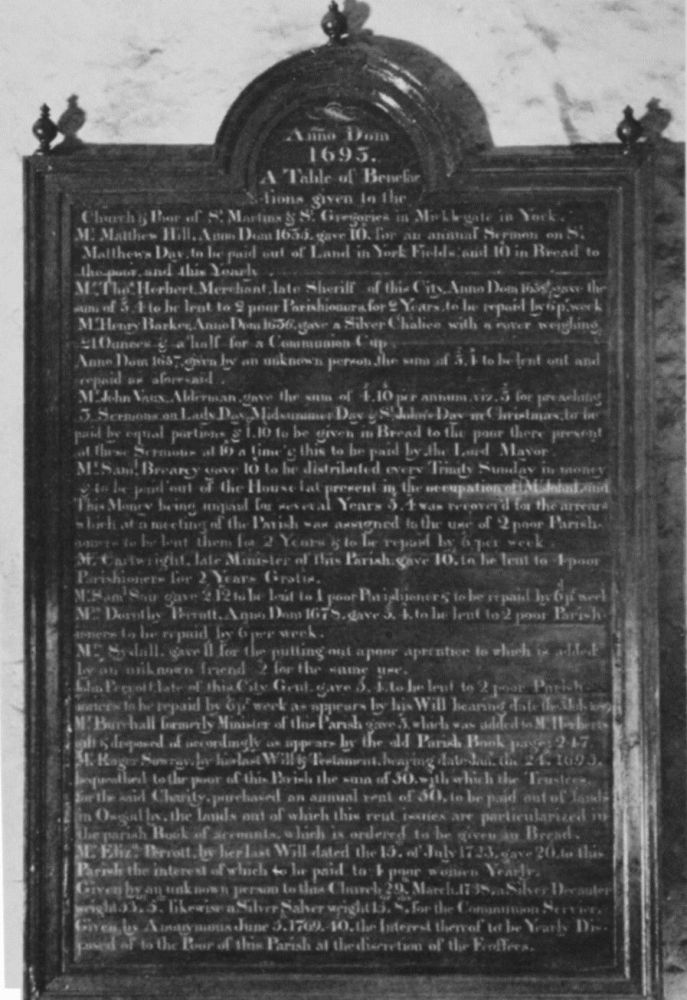 Anno Dom
1695.
A Table of Benefac
-tions given to the
Church & Poor of St. Martins & St. Gregories in Micklegate in York.
Mr. Matthew Hill, Anno Dom 1635, gave 10, for an annual Sermon on St.
Matthews Day, to be paid out of Land in York Fields, and 10 in Bread to
the poor, and this Yearly
Mr. Thos. Herbert, Merchant, late Sheriff of this City, Anno Dom gave the
sum of 5,4 to be lent to 2 poor Parishioners, for 2 Years, to be repaid by 6 pr. week
Mr. Henry Barker, Anno Dom 1656, gave a Silver Chalice with a cover weighing
21 Ounces & a half for a Communion Cup.
Anno Dom 1657, given by an unknown person, the sum of 5,4 to be lent out and
repaid as aforesaid.
Mr. John Vaux, Alderman, gave the sum of 4,10 per annum, viz. 3 for preaching
3 Sermons on Lady Day, Midsummer Day & St. John's Day in Christmas, to be
paid by equal portions, & 1,10 to be given in Bread to the poor there present
at these Sermons at 10 a time & this to be paid by the Lord Mayor
Mr. Saml. Brearey gave 10 to be distributed every Trinity Sunday in money
& to be paid out of the House (at present in the occupation of) Mr. and
This Money being unpaid for several Years 5,4 was recover'd for the arrears
which at a meeting of the Parish was assigned to the use of 2 poor Parish-
ioners to be lent them for 2 Years & to be repaid by 6 per week.
Mr. Cartwright, late Minister of this Parish, gave 10, to be lent to 4 poor
Parishioners for 2 Years Gratis.
Mr. Saml. gave 2 12 to be lent to 1 poor Parishioner & to be repaid by 6d pr. week
Mrs. Dorothy Perrott, Anno Dom 1678, gave 5,4, to be lent to 2 poor Parish-
ioners to be repaid by 6 per week.
Mrs. Sydall, gave for the putting out a poor aprentice to which is added
by an unknown friend 2 for the same use.
John Perrott late of this City Gent. gave 5,4, to be lent to 2 poor Parish-
ioners to be repaid by 6 pr. week as appears by his Will bearing date the
Mr. Burchall formerly Minister of this Parish gave 5, which was added to Mr. Herberts
gift & disposed of accordingly as appears by the old Parish Book page 247.
Mr. Roger Sowray, by his last Will & Testament, bearing date Jan. the 24, 1693,
bequeathed to the poor of this Parish the sum of 50, with which the Trustees
for the said Charity, purchased an annual rent of 50, to be paid out of lands
in Osgodby, the lands out of which this rent issues are particularized in
the parish Book of accounts, which is ordered to be given in Bread.
Mrs. Elizth. Perrott, by her last Will dated the 15, of July 1725, gave 20, to this
Parish the interest of which to be paid to 4 poor women Yearly.
Given by an unknown person to this Church 29, March, 1798, a Silver Decanter
weight 53, 5, likewise a Silver Salver weight 15, 8, for the Communion Service.
Given by Anonymous June 5, 1769, 40, the Interest thereof to be Yearly Dis-
posed of to the Poor of this Parish at the discretion of the Feoffees.